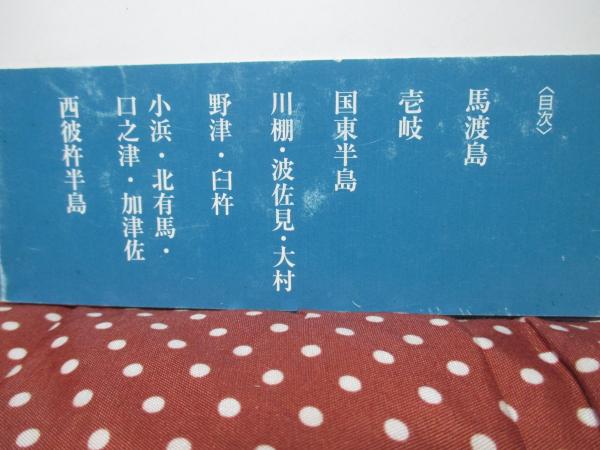 〈目次〉
馬渡島
壱岐
国東半島
川棚・波佐見・大村
野津・臼杵
小浜・北有馬・
口之津・加津佐
西彼杵半島